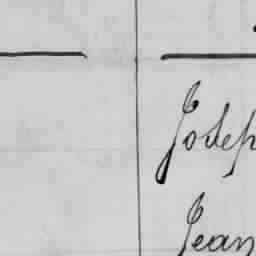 Josep
Jean